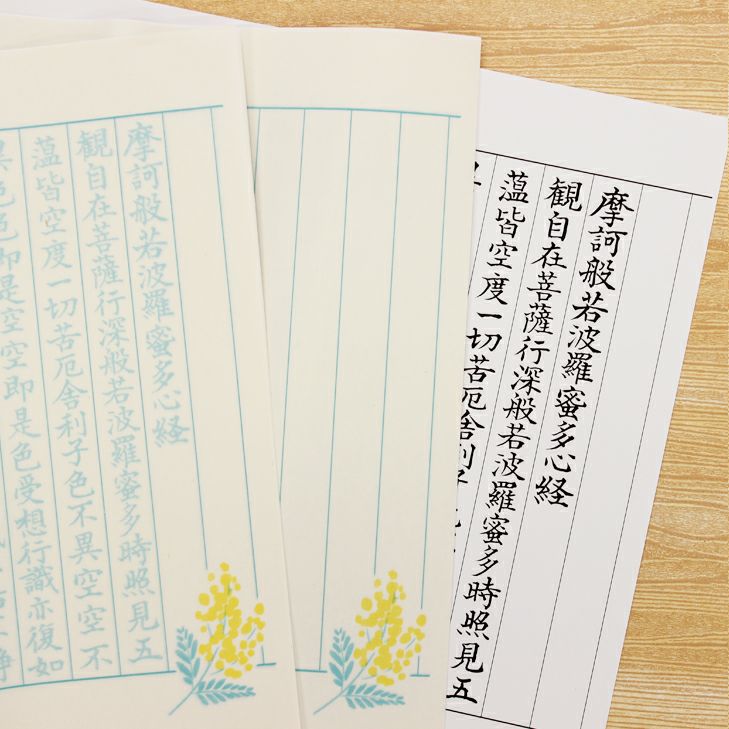 摩訶般若波羅蜜多心経
観自在菩薩行深般若波羅蜜多時照見五
薀皆空度一切苦厄舎利子
摩訶般若波羅蜜多心経
観自在菩薩行深般若波羅蜜多時照見五
薀皆空度一切苦厄舎利子色不異空空不
異色色即是空空即是色受想行識亦復如
浄